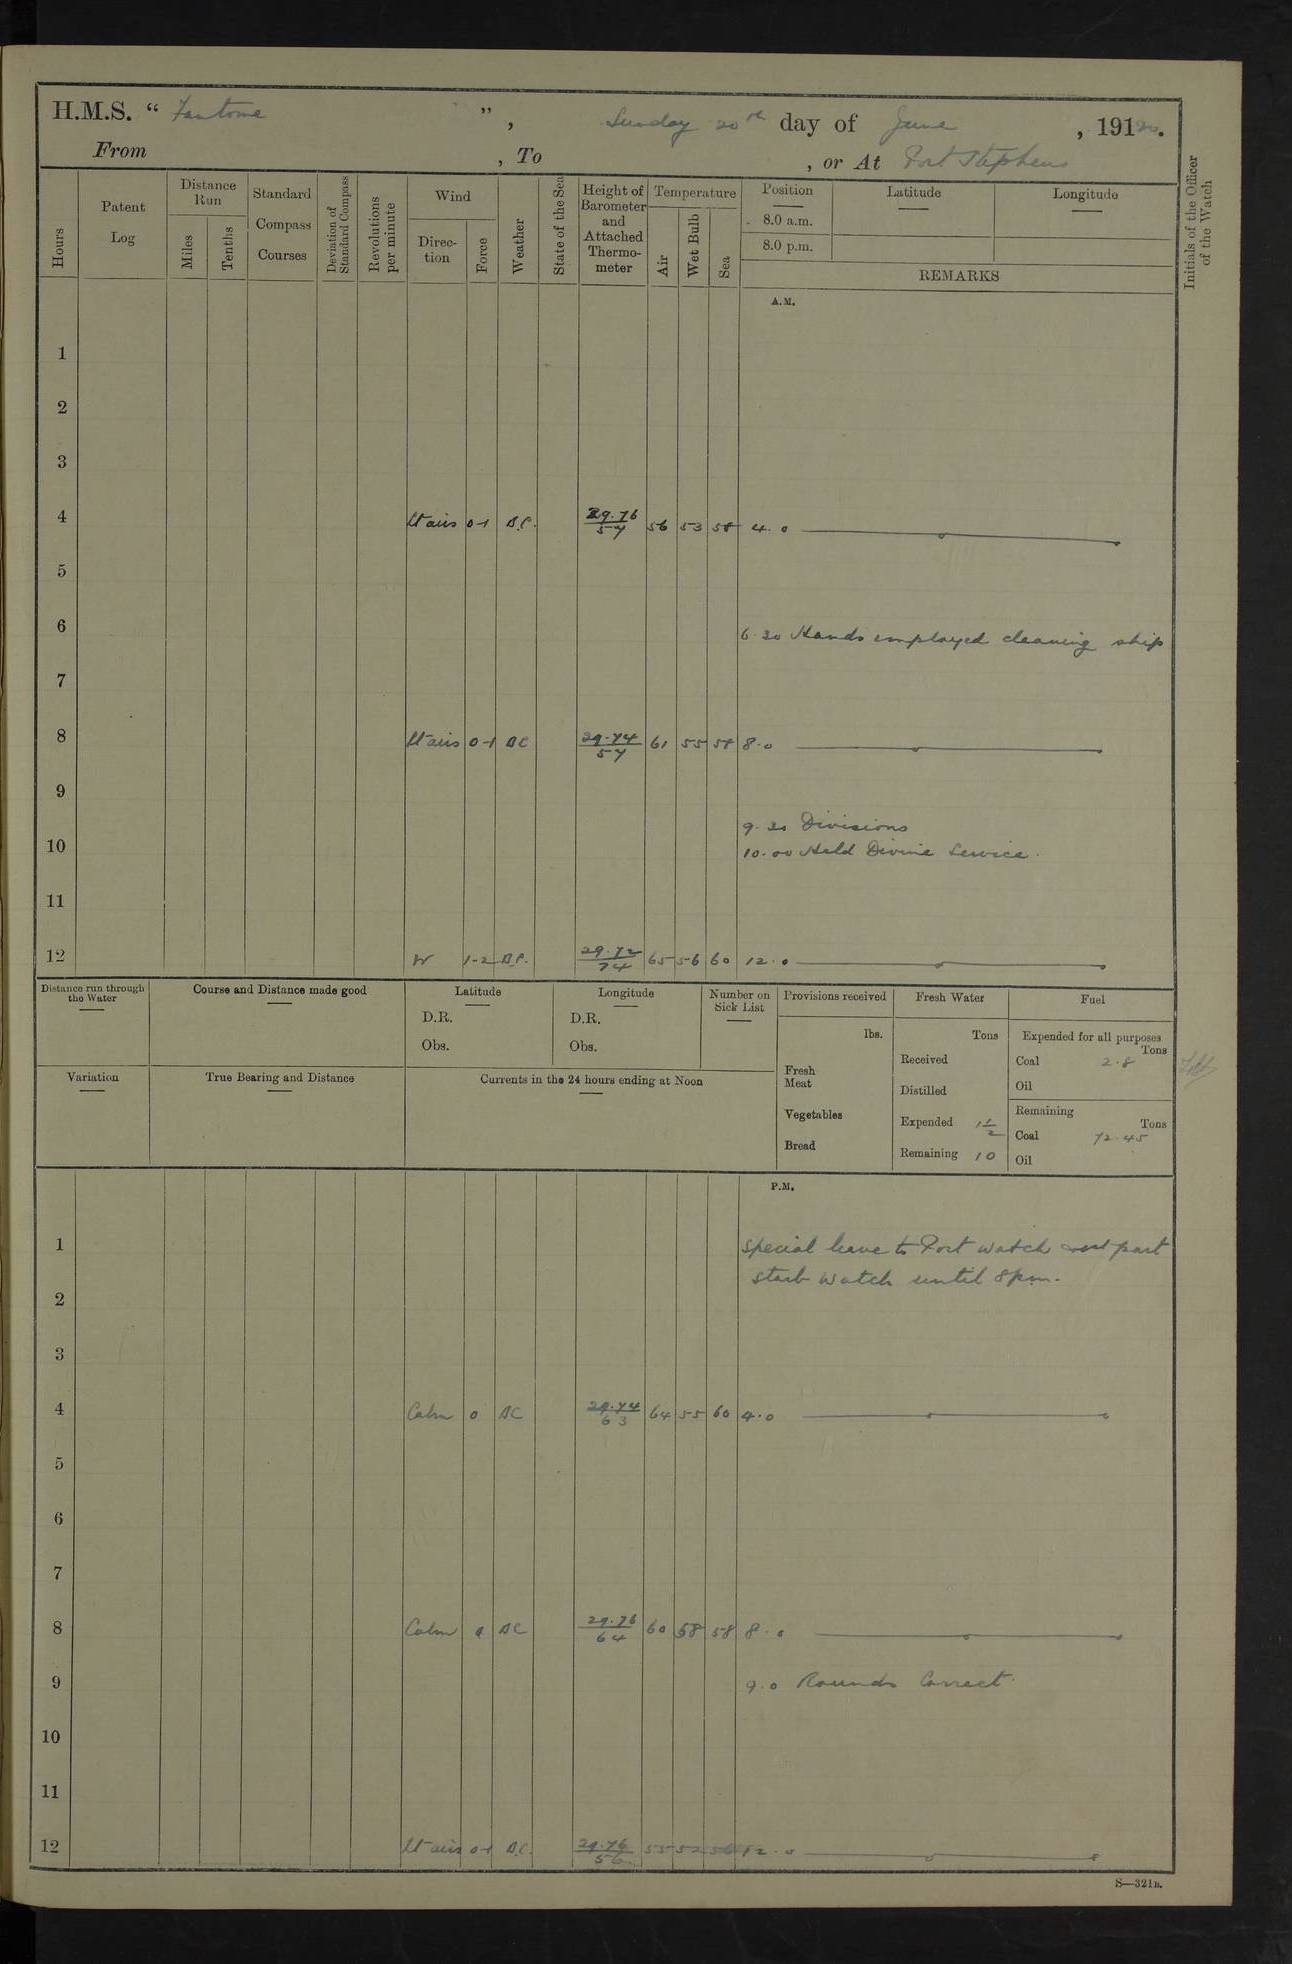 H.M.S. “ Fantome ”, Sunday 20th day of June , 19120.
From , To , or At Port Stephens
Hours
Patent Log
Distance Run
Miles
Tenths
Standard Compass Courses
Deviation of Standard Compass
Revolutions per minute
Wind
Direction
Force
Weather
State of the Sea
Height of Barometer and Attached Thermometer
Temperature
Air
Wet Bulb
Sea
Position
8.0 a.m.
8.0 p.m.
Latitude
Longitude
REMARKS
Initials of the Officer of the Watch
A.M.
1
2
3
4 Lt airs 0-1 B.C. 29.76 57 56 53 58 4.0
5
6 6.30 Hands employed cleaning ship
7
8 Lt airs 0-1 BC 29.74 57 61 55 58 8.0
9
9.30 Divisions
10 10.00 Held Divine Service.
11
12 W 1-2 B.C. 29.72 74 65 56 60 12.0
Distance run through the Water
Course and Distance made good
Latitude
D.R.
Obs.
Longitude
D.R.
Obs.
Number on Sick List
Provisions received
lbs.
Fresh Meat
Vegetables
Bread
Fresh Water
Tons
Received
Distilled
Expended 1 1/2
Remaining 10
Fuel
Expended for all purposes
Tons
Coal 2.8
Oil
Remaining
Tons
Coal 72.45
Oil
Variation
True Bearing and Distance
Currents in the 24 hours ending at Noon
P.M.
1 Special leave to Port watch and part
Starb watch until 8pm.
2
3
4 Calm 0 BC 29.74 63 64 55 60 4.0
5
6
7
8 Calm 0 BC 29.76 64 60 58 58 8.0
9 9.0 Rounds Correct.
10
11
12 Lt airs 0-1 B.C. 29.76 56 55 52 56 12.0
S—321B.